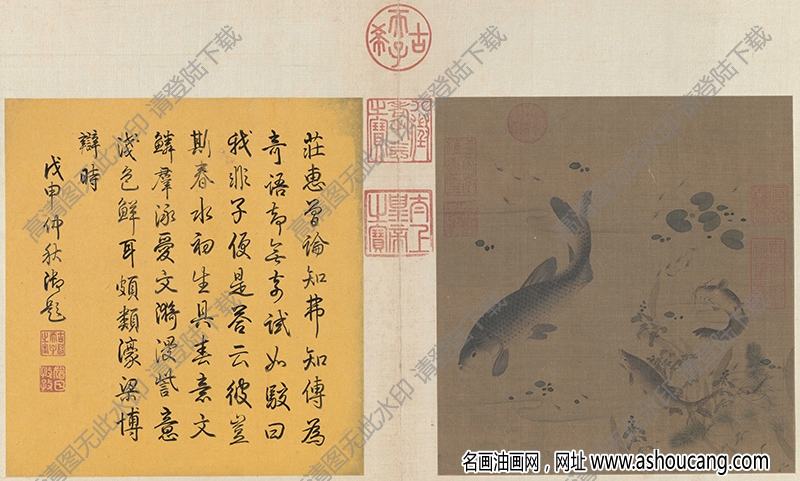 古希天子
八徵耄念之寶
太上皇帝之寶
莊惠曾論知弗知傳為
奇語却無奇試如駁曰
我非子便是答云彼豈
斯春水初生具春意文
鱗羣泳愛文漪漫訾意
淺色鮮耳頗類濠梁博
辯時
戊申仲秋御題
高清图无此水印 请登陆下载
名画油画网，网址 www.ashoucang.com